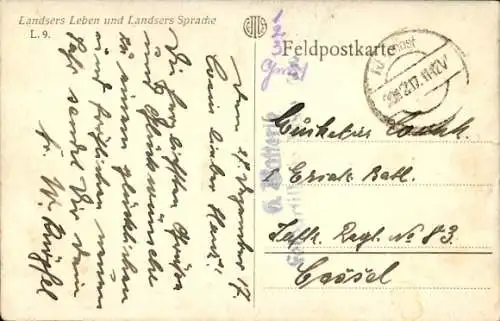 Landsers Leben und Landsers Sprache
L. 9.
Feldpostkarte
1
2
3
den 27. Dezember 17.
Mein lieber Hans!
Die herzlichsten Grüße
und Glückwünsche
zu einem glücklichen
und fröhlichen neuen
Jahr sendet Dir Dein
Fr. W.
Musketier
1 Ersatz Batl.
Inftr. Regt. No 83.
Cassel